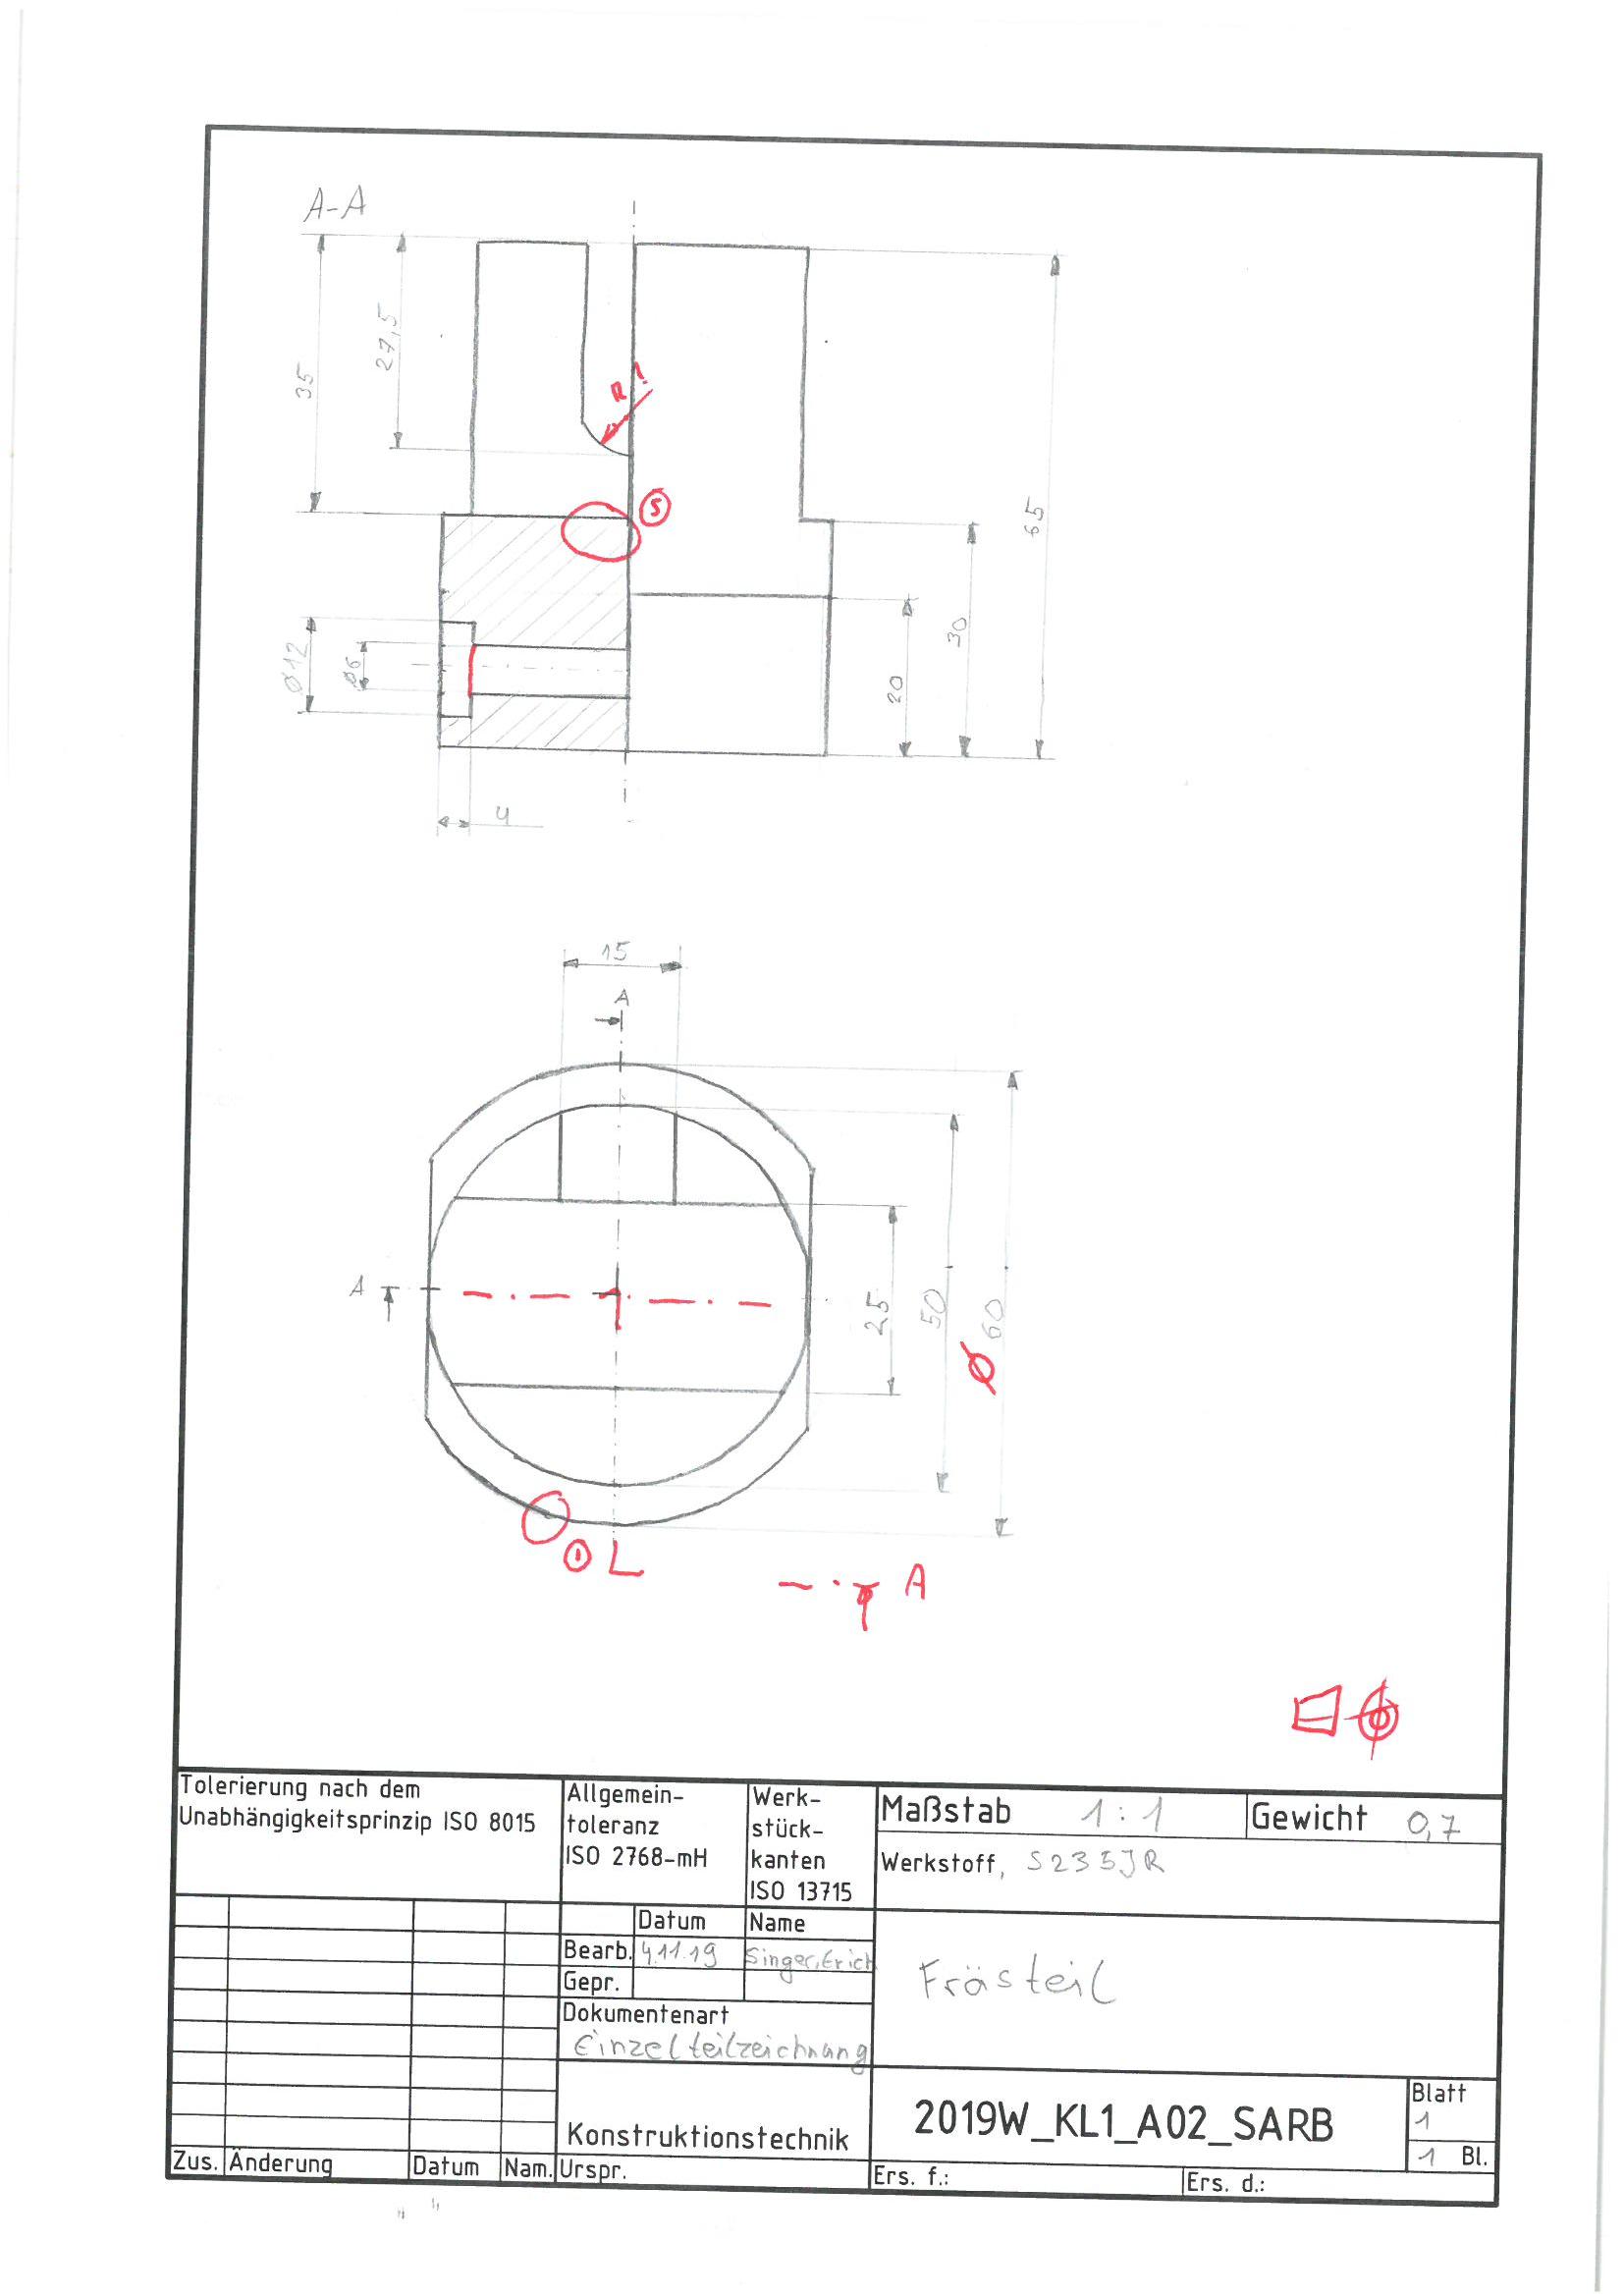 A-A
35
27,5
R!
5
65
30
20
Ø12
Ø6
4
15
A
A
25
50
Ø
60
1
A
Tolerierung nach dem
Unabhängigkeitsprinzip ISO 8015
Allgemein-
toleranz
ISO 2768-mH
Werk-
stück-
kanten
ISO 13715
Maßstab 1:1
Gewicht 0,7
Werkstoff, S235JR
Datum Name
Bearb. 4.11.19 Singer, Erich
Gepr.
Frästeil
Dokumentenart
Einzelteilzeichnung
Konstruktionstechnik
2019W_KL1_A02_SARB
Blatt
1
1 Bl.
Zus. Änderung Datum Nam. Urspr.
Ers. f.: Ers. d.: